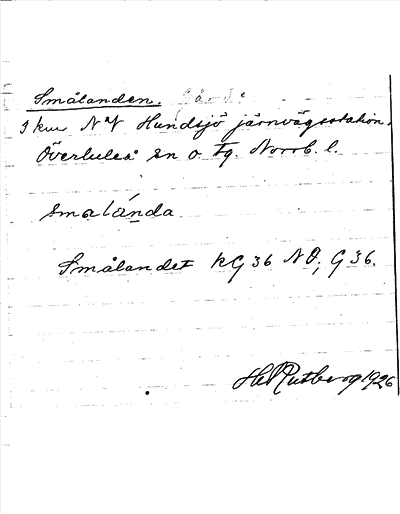 Smålanden. Gård.
3 km NV Hundsjö järnvägsstation.
Överluleå sn o tg. Norrb. l.
smalánda
Smålandet KG 36 NO, G 36.
Rutberg 1926